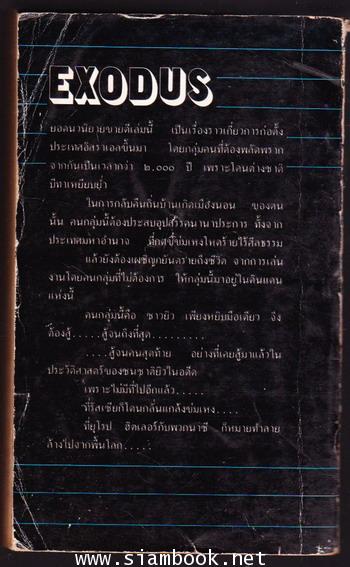 EXODUS
ยอดนวนิยายขายดีเล่มนี้ เป็นเรื่องราวเกี่ยวการก่อตั้ง
ประเทศอิสราเอลขึ้นมา โดยกลุ่มคนที่ต้องพลัดพราก
จากกันเป็นเวลากว่า ๒,๐๐๐ ปี เพราะโดนต่างชาติ
บีฑาเหยียบย่ำ
ในการกลับคืนถิ่นบ้านเกิดเมืองนอน ของตน
นั้น คนกลุ่มนี้ต้องประสบอุปสรรคนานาประการ ทั้งจาก
ประเทศมหาอำนาจ ที่กดขี่ข่มเหงโหดร้ายไร้ศีลธรรม
แล้วยังต้องเผชิญภยันตรายถึงชีวิต จากการเล่น
งานโดยคนกลุ่มที่ไม่ต้องการ ให้กลุ่มนี้มาอยู่ในดินแดน
แห่งนี้
คนกลุ่มนี้คือ ชาวยิว เพียงหยิบมือเดียว จึง
ต้องสู้.....สู้จนถึงที่สุด.........
....สู้จนคนสุดท้าย อย่างที่เคยสู้มาแล้วใน
ประวัติศาสตร์ของชนชาติยิวในอดีต
เพราะไม่มีที่ไปอีกแล้ว.....
ที่รัสเซียก็โดนกลั่นแกล้งข่มเหง....
ที่ยุโรป ฮิตเลอร์กับพวกนาซี ก็หมายทำลาย
ล้างไปจากพื้นโลก.....
www.siambook.net